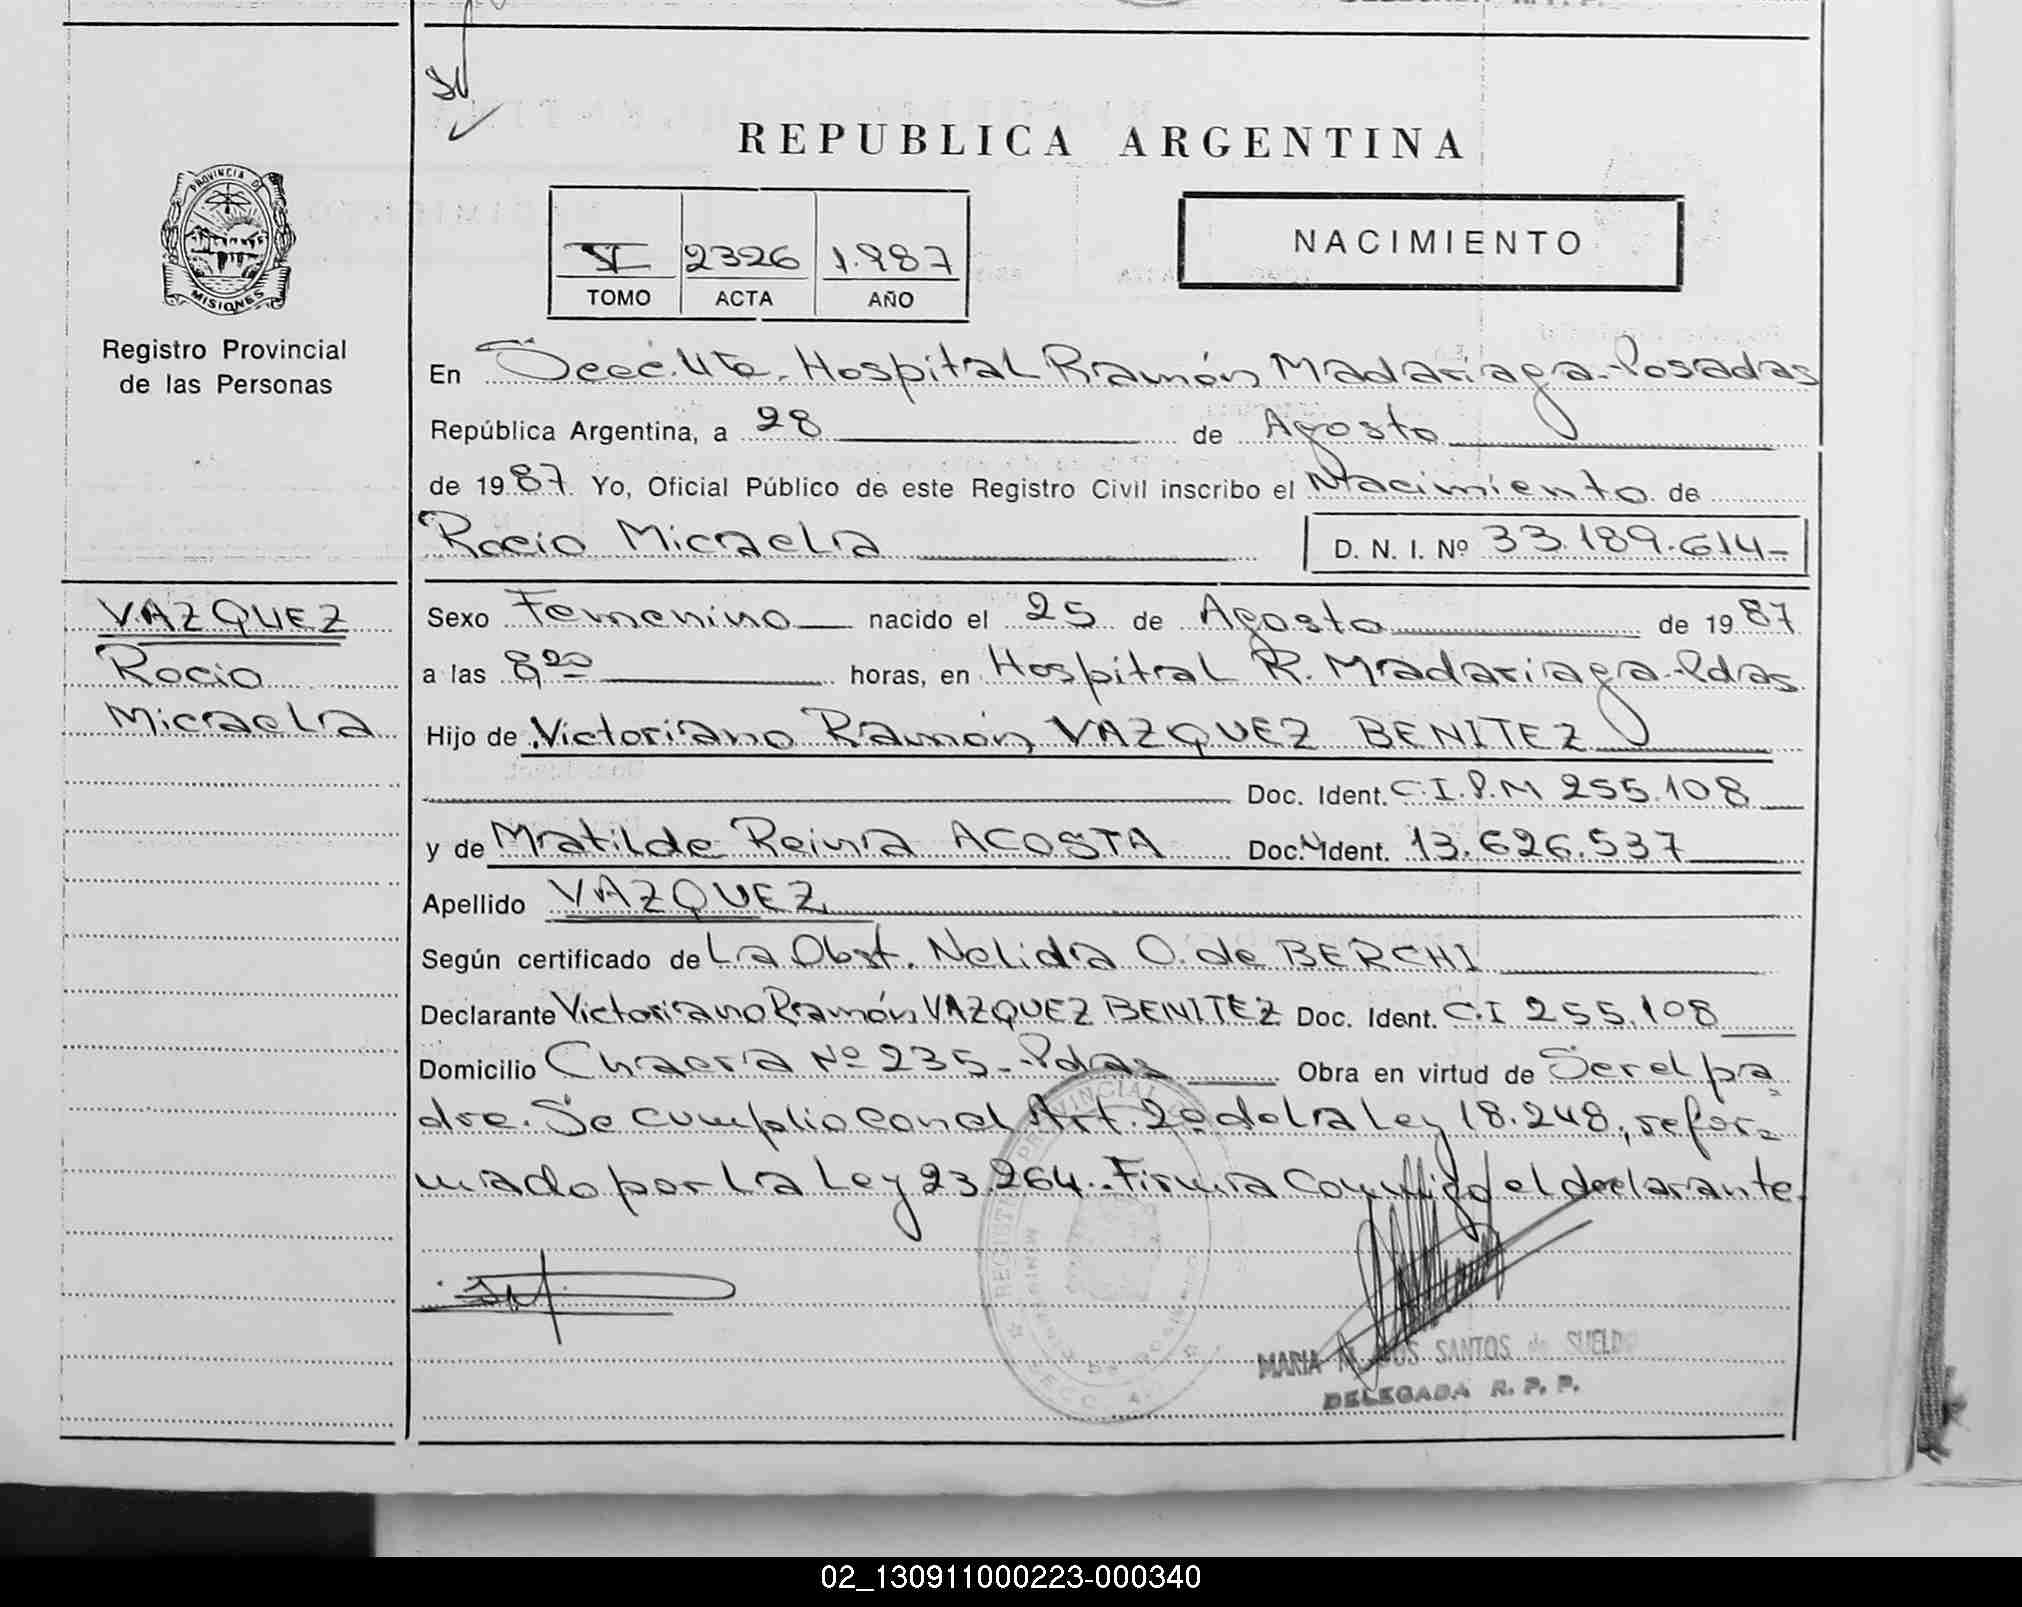 REPUBLICA ARGENTINA
PROVINCIA DE
MISIONES
Registro Provincial
de las Personas
VI 2326 1.987
TOMO ACTA AÑO
NACIMIENTO
En Secc. 4ta. Hospital Ramón Madariaga-Posadas
República Argentina, a 28 de Agosto
de 1987 Yo, Oficial Público de este Registro Civil inscribo el Nacimiento de
Rocio Micaela D. N. I. Nº 33.189.614-
VAZQUEZ
Rocio
Micaela
Sexo Femenino nacido el 25 de Agosto de 1987
a las 8,20 horas, en Hospital R. Madariaga-Pdas
Hijo de Victoriano Ramón VAZQUEZ BENITEZ
Doc. Ident. C.I.P.M 255.108
y de Matilde Reina ACOSTA Doc. N Ident. 13.626.537
Apellido VAZQUEZ
Según certificado de La Obst. Nelida O. de BERCHI
Declarante Victoriano Ramón VAZQUEZ BENITEZ Doc. Ident. C.I 255.108
Domicilio Chacra Nº 235-Pdas Obra en virtud de Ser el pa
dre. Se cumplio con el Art. 2º de la Ley 18.248, refor
mado por la Ley 23.264.. Firma conmigo el declarante.
MARIA SANTOS de SUELDO
DELEGADA R. P. P.
02_130911000223-000340